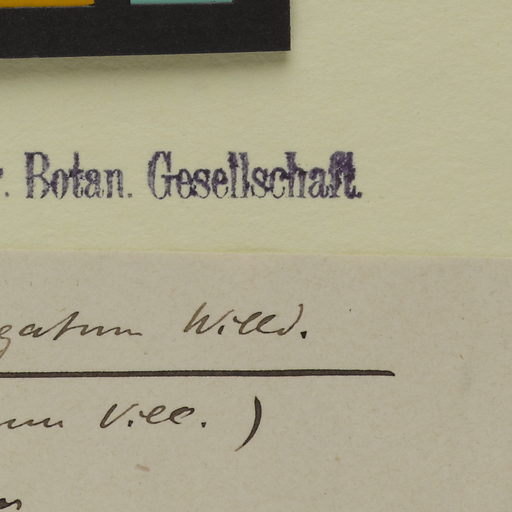 r. Botan. Gesellschaft.
gatum Willd.
um Vill. )